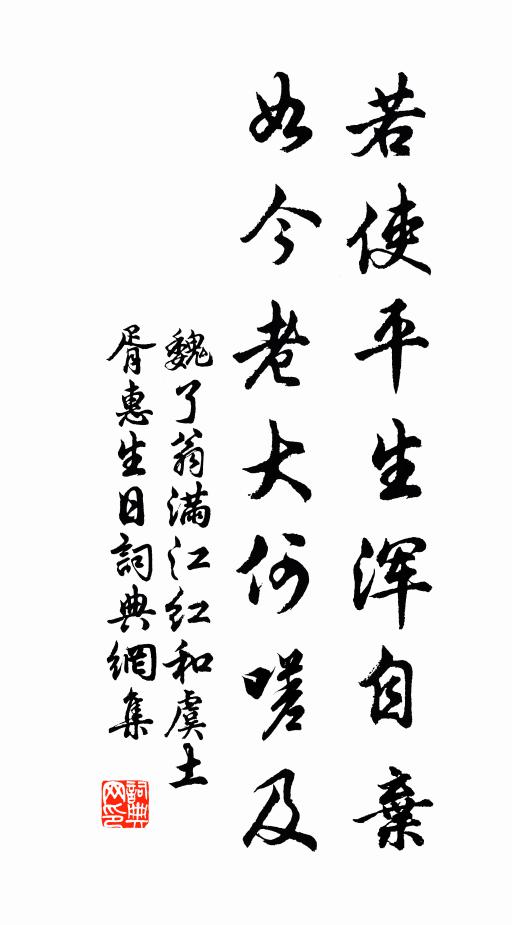 若使平生浑自棄
如今老大何嗟及
魏了翁满江红和虞土
胥惠生日詞典網集
詞典网印